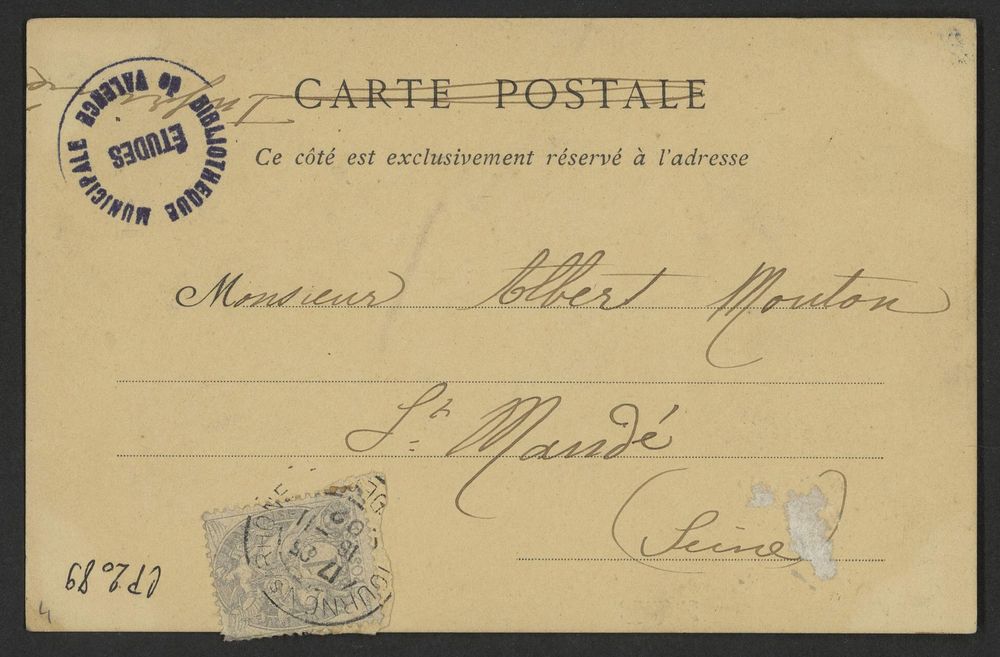 CARTE POSTALE
Ce côté est exclusivement réservé à l'adresse
BIBLIOTHEQUE MUNICIPALE
de VALENCE
ÉTUDES
Monsieur Albert Mouton
St Mandé
(Seine)
TOURNON S RHONE
17
CP20 89
4